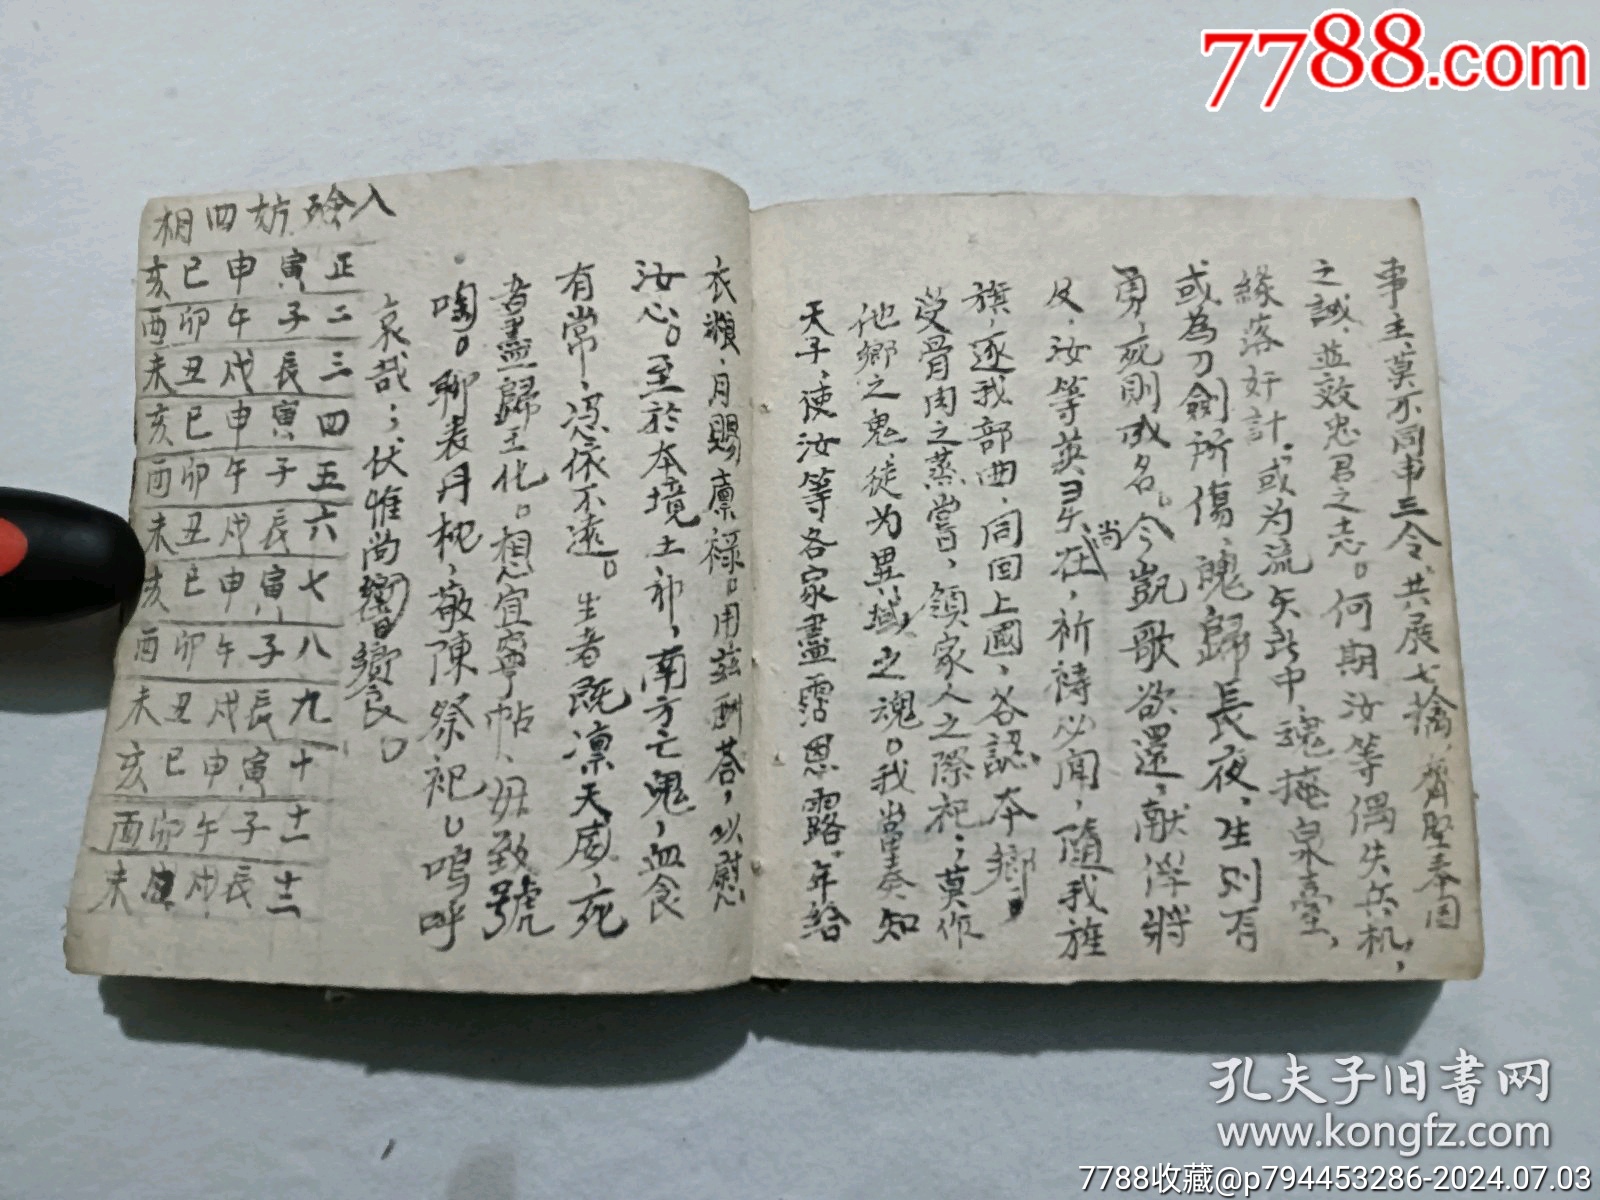 事主，莫不同申三令，共展七擒，齊堅奉国
之誠，並效忠君之志。何期汝等偶失兵机，
緣落奸計。或为流矢所中，魂掩泉臺，
或為刀劍所傷，魄歸長夜，生则有
勇，死則成名。今凱歌欲還，献俘將
及，汝等英灵尚在，祈禱必闻，隨我旌
旗，逐我部曲，同回上國，各認本鄉，
受骨肉之蒸嘗，領家人之際祀；莫作
他鄉之鬼，徒为異域之魂。我當奏知
天子，使汝等各家盡霑恩露，年給
衣粮，月賜廪禄。用兹酬荅，以慰
汝心。至於本境土祁，南方亡鬼，血食
有常，凭依不遠。生者既凛天威，死
者盡歸王化。想宜寧帖，毋致號
啕。聊表丹忱，敬陳祭祀，嗚呼
哀哉；伏惟尚饗。
入 妨四相
正寅申巳亥
二子午卯酉
三辰戌丑未
四寅申巳亥
五子午卯酉
六辰戌丑未
七寅申巳亥
八子午卯酉
九辰戌丑未
十寅申巳亥
十一子午卯酉
十二辰戌丑未
7788.com
孔夫子旧書网
www.kongfz.com
7788收藏@p794453286-2024.07.03